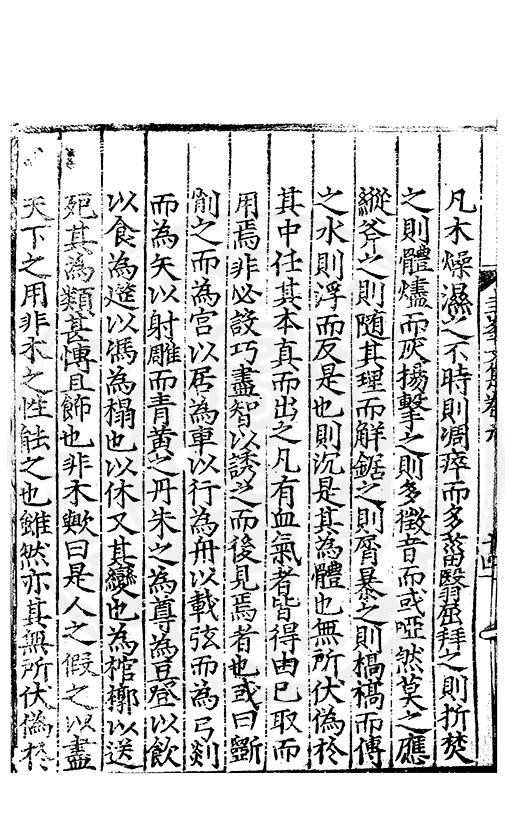 凡木燥濕之不時則凋瘁而多菑翳屈拜之則折焚
之則體燼而灰揚擊之則多徵音而或啞然莫之應
縱斧之則随其理而解鋸之則屑暴之則槁槁而傅
之水則浮而反是也則沉是其為體也無所伏偽於
其中任其本真而出之凡有血氣者皆得由己取而
用焉非必設巧盡智以誘之而後見焉者也或曰斵
削之而為宫以居為車以行為舟以載弦而為弓剡
而為矢以射雕而青黄之丹朱之為尊為豆登以飲
以食為筵以慿為榻也以休又其變也為棺槨以送
死其為類甚慱且飾也非木歟曰是人之假之以盡
天下之用非木之性能之也雖然亦其無所伏偽於